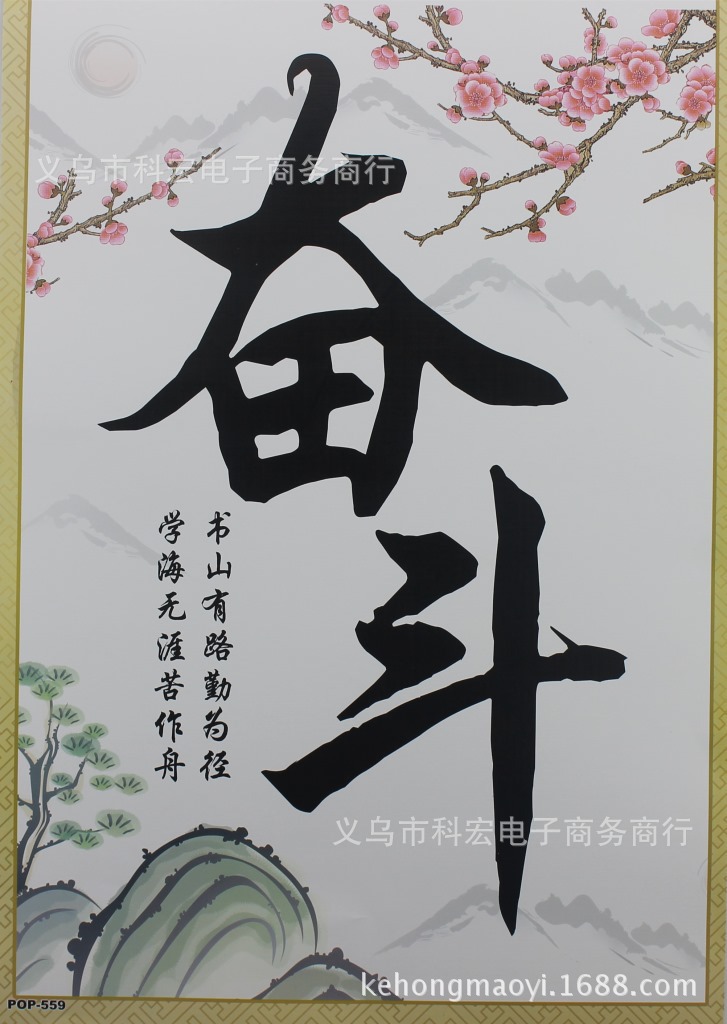 义乌市科宏电子商务商行
奋斗
书山有路勤为径
学海无涯苦作舟
义乌市科宏电子商务商行
kehongmaoyi.1688.com
POP-559